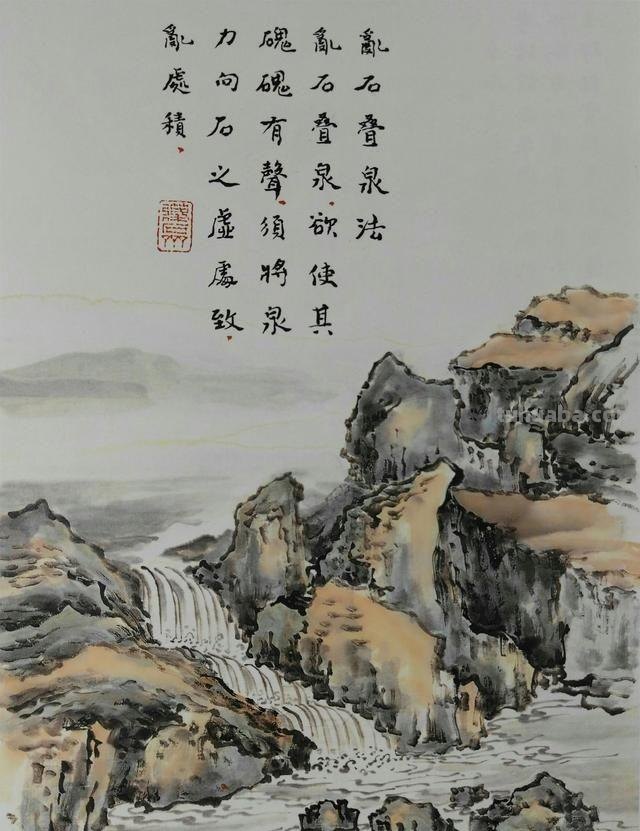 亂石叠泉法
亂石叠泉欲使其
磈磈有聲須將泉
力向石之虛處致
亂處積